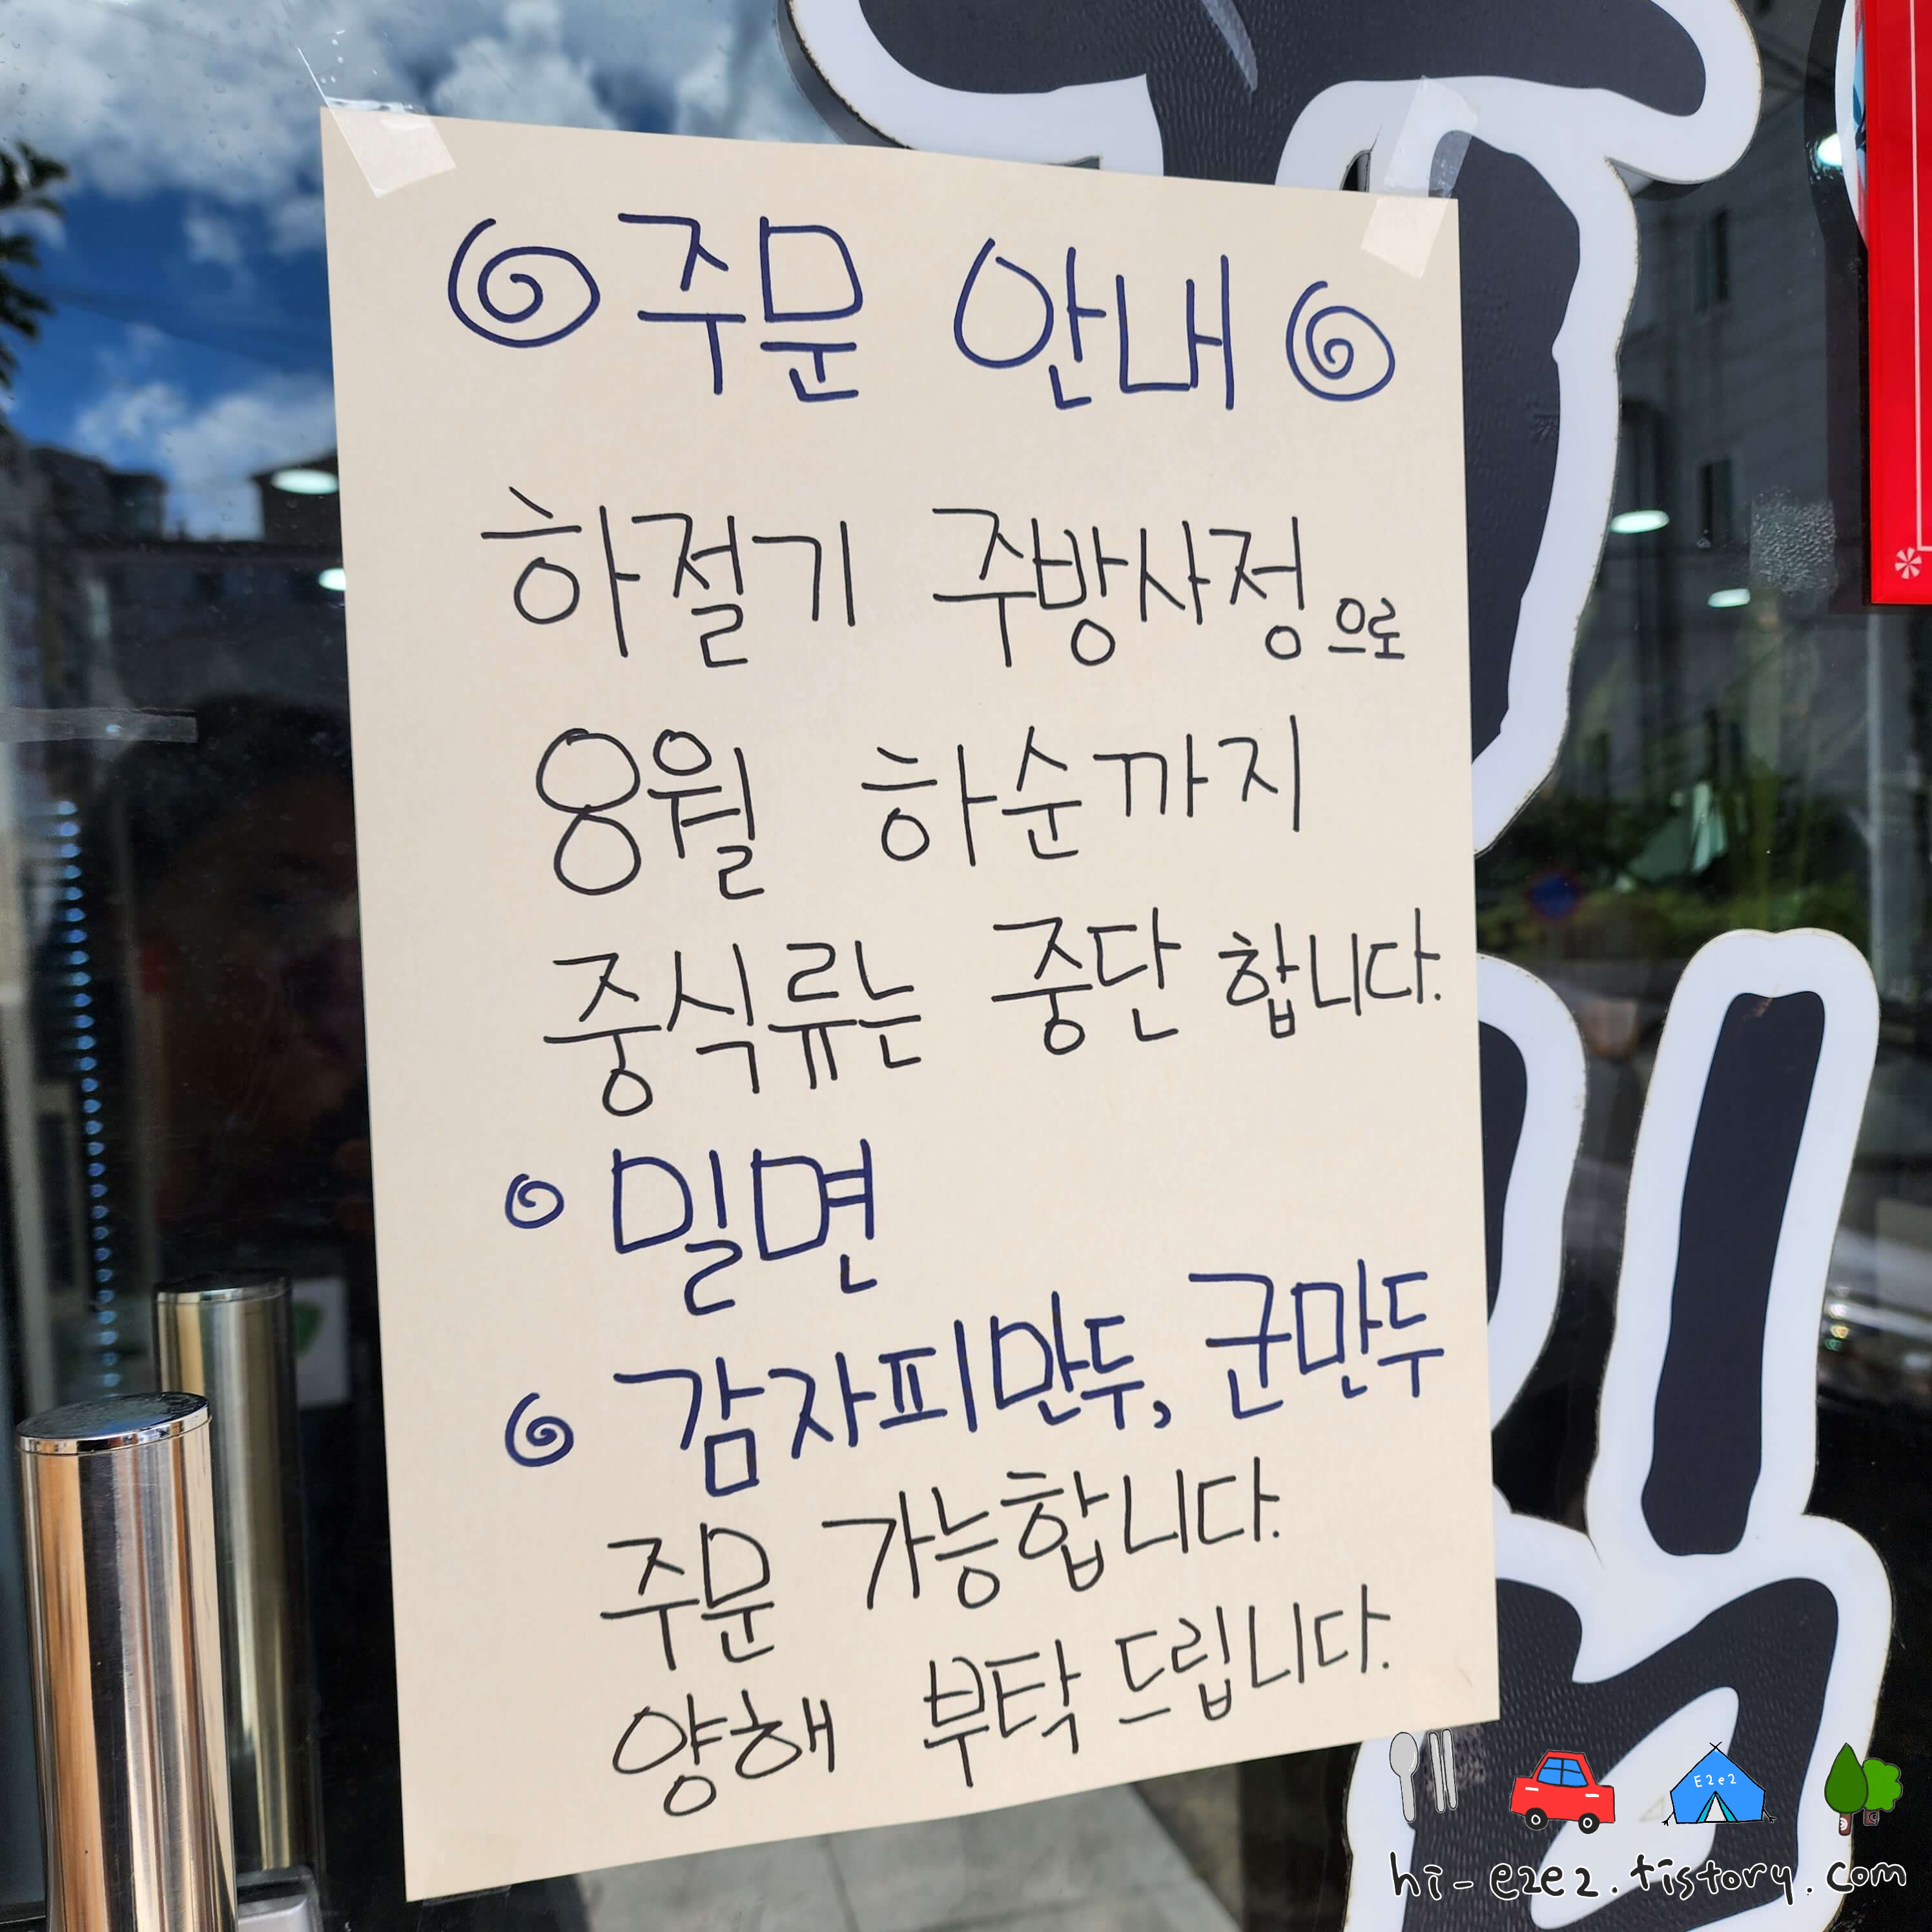 주문 안내
하절기 주방사정으로
8월 하순까지
중식류는 중단 합니다.
밀면
감자피만두, 군만두
주문 가능합니다.
양해 부탁 드립니다.
E2e2
hi-e2e2.tistory.com